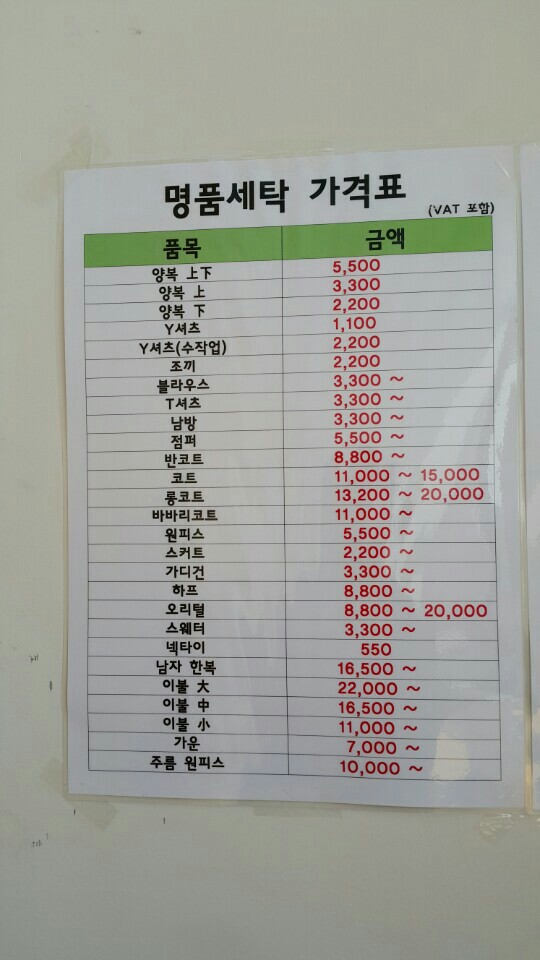 명품세탁 가격표
(VAT 포함)
품목 금액
양복 上下 5,500
양복 上 3,300
양복 下 2,200
Y셔츠 1,100
Y셔츠(수작업) 2,200
조끼 2,200
블라우스 3,300 ~
T셔츠 3,300 ~
남방 3,300 ~
점퍼 5,500 ~
반코트 8,800 ~
코트 11,000 ~ 15,000
롱코트 13,200 ~ 20,000
바바리코트 11,000 ~
원피스 5,500 ~
스커트 2,200 ~
가디건 3,300 ~
하프 8,800 ~
오리털 8,800 ~ 20,000
스웨터 3,300 ~
넥타이 550
남자 한복 16,500 ~
이불 大 22,000 ~
이불 中 16,500 ~
이불 小 11,000 ~
가운 7,000 ~
주름 원피스 10,000 ~